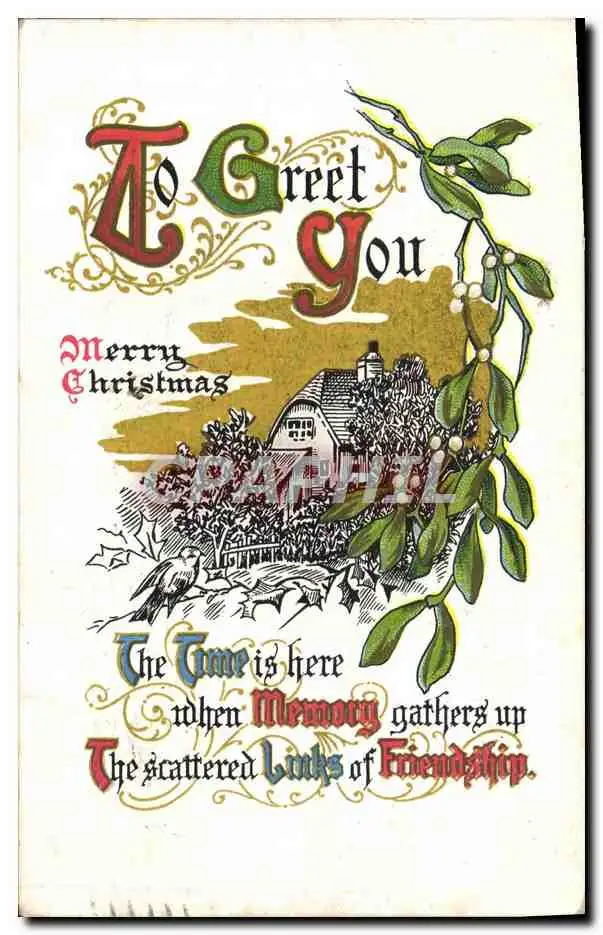 To Greet
You
Merry
Christmas
CPAPHIL
The Time is here
when Memory gathers up
The scattered Links of Friendship.